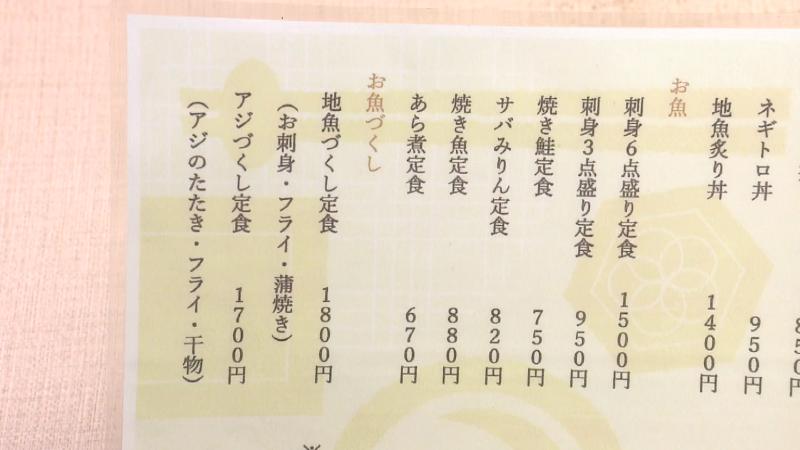 850円
ネギトロ丼 950円
地魚炙り丼 1400円
お魚
刺身6点盛り定食 1500円
刺身3点盛り定食 950円
焼き鮭定食 750円
サバみりん定食 820円
焼き魚定食 880円
あら煮定食 670円
お魚づくし
地魚づくし定食 1800円
(お刺身・フライ・蒲焼き)
アジづくし定食 1700円
(アジのたたき・フライ・干物)
※